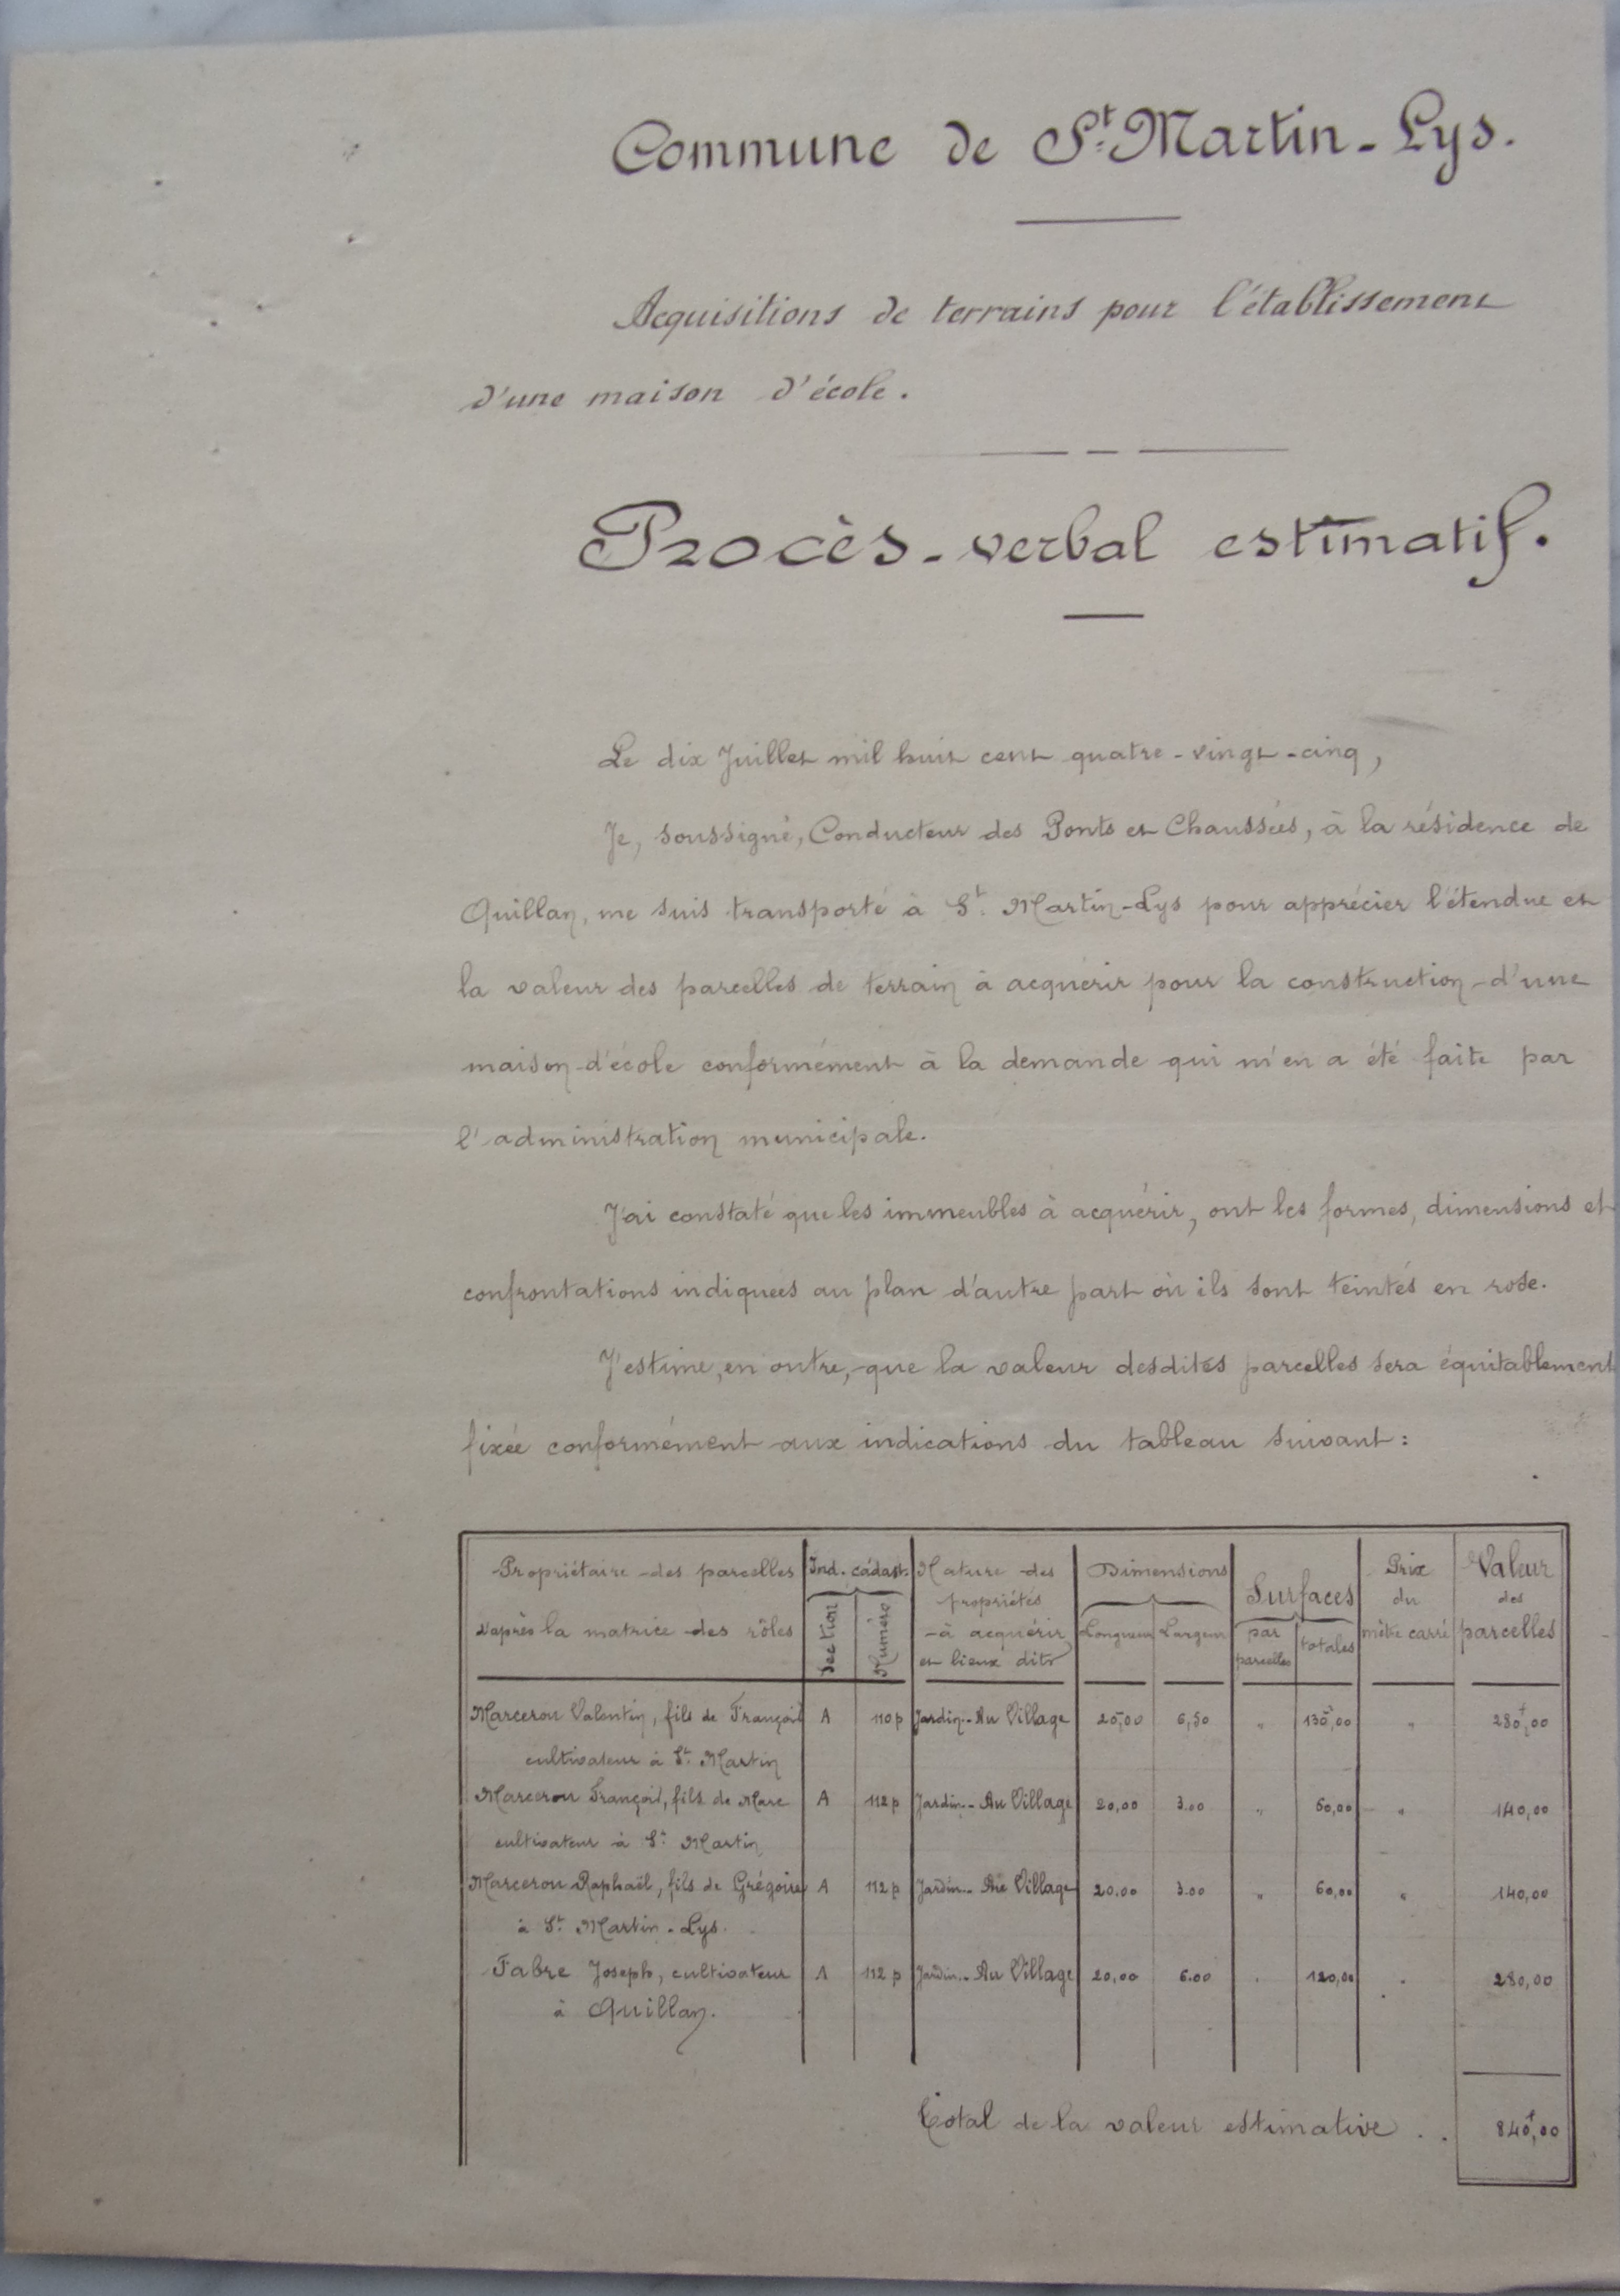 Commune de St. Martin-Lys.
Acquisitions de terrains pour l'établissement
d'une maison d'école.
Procès-verbal estimatif.
Le dix Juillet mil huit cent quatre-vingt-cinq,
Je, soussigné, Conducteur des Ponts et Chaussées, à la résidence de
Quillan, me suis transporté à St. Martin-Lys pour apprécier l'étendue et
la valeur des parcelles de terrain à acquérir pour la construction d'une
maison d'école conformément à la demande qui m'en a été faite par
l'administration municipale.
J'ai constaté que les immeubles à acquérir, ont les formes, dimensions et
confrontations indiquées au plan d'autre part où ils sont teintés en rose.
J'estime, en outre, que la valeur desdites parcelles sera équitablement
fixée conformément aux indications du tableau suivant:
Propriétaire des parcelles d'après la matrice des rôles
Ind. cadast. Section Numéro
Nature des propriétés à acquérir et lieux dits
Dimensions Longueur Largeur
Surfaces par parcelles totales
Prix du mètre carré
Valeur des parcelles
Marcerou Valentin, fils de François A 110 p Jardin.- Au Village 20,00 6,50 " 130,00 " 280f,00
cultivateur à St. Martin
Marcerou François, fils de Marc A 112 p Jardin.- Au Village 20,00 3.00 " 60,00 " 140,00
cultivateur à St. Martin
Marcerou Raphaël, fils de Grégoire A 112 p Jardin.- Au Village 20.00 3.00 " 60,00 " 140,00
à St. Martin-Lys.
Fabre Joseph, cultivateur A 112 p Jardin.- Au Village 20,00 6.00 " 120,00 " 280,00
à Quillan.
Total de la valeur estimative . . 840f,00